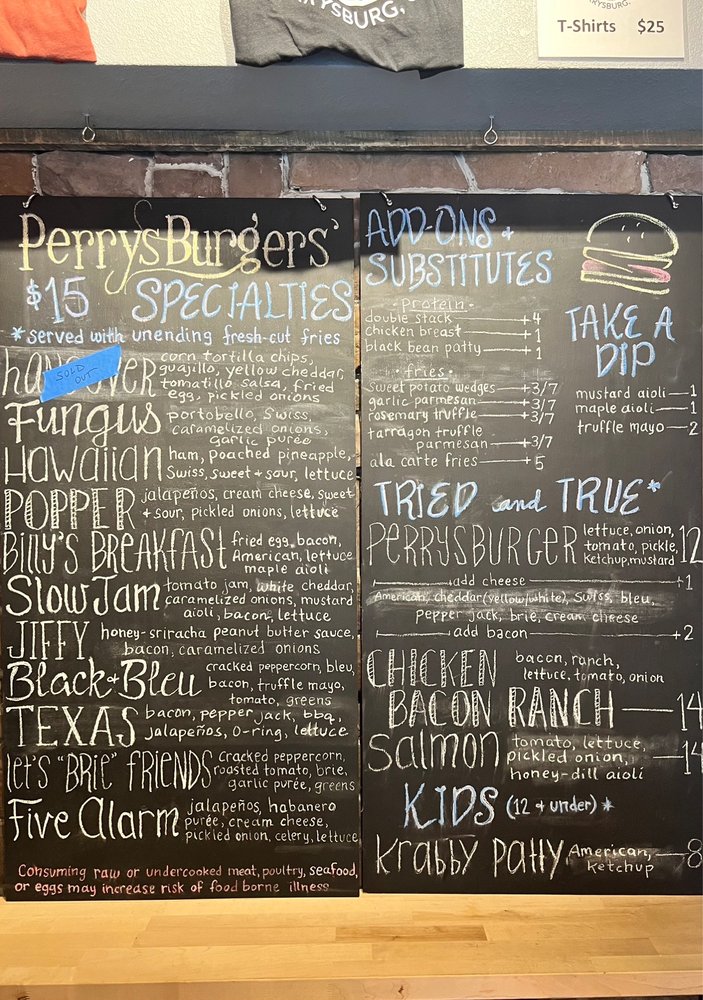 RRYSBURG,
RRYSBURG,
T-Shirts $25
PerrysBurgers'
$15 SPECIALTIES
*served with unending fresh-cut fries
SOLD
OUT
corn tortilla chips,
guajillo, yellow cheddar,
tomatillo salsa, fried
egg, pickled onions
Fungus
portobello, Swiss,
caramelized onions,
garlic purée
Hawaiian
ham, poached pineapple,
Swiss, sweet + sour, lettuce
POPPER
jalapeños, cream cheese, sweet
+ sour, pickled onions, lettuce
BILLY'S BREAKFAST
fried egg, bacon,
American, lettuce
maple aioli
Slow Jam
tomato jam, white cheddar,
caramelized onions, mustard
aioli, bacon, lettuce
JIFFY
honey-sriracha peanut butter sauce,
bacon, caramelized onions
Black+Bleu
cracked peppercorn, bleu,
bacon, truffle mayo,
tomato, greens
TEXAS
bacon, pepper jack, bbq,
jalapeños, o-ring, lettuce
let's "BRIE" FRIENDS
Cracked peppercorn,
roasted tomato, brie,
garlic purée, greens
Five Alarm
jalapeños, habanero
purée, cream cheese,
pickled onion, celery, lettuce
Consuming raw or undercooked meat, poultry, seafood,
or eggs may increase risk of food borne illness
ADD-ONS +
SUBSTITUTES
-protein-
double stack +4
chicken breast +1
black bean patty +1
-fries-
sweet potato wedges +3/7
garlic parmesan +3/7
rosemary truffle +3/7
tarragon truffle
parmesan +3/7
ala carte fries +5
TAKE A
DIP
mustard aioli 1
maple aioli 1
truffle mayo 2
TRIED and TRUE*
PERRYSBURGER
lettuce, onion,
tomato, pickle,
Ketchup, mustard
12
add cheese +1
American, cheddar (yellow/white), Swiss, bleu,
pepper jack, brie, cream cheese
add bacon +2
CHICKEN
BACON RANCH 14
bacon, ranch,
lettuce, tomato, onion
Salmon
tomato, lettuce,
pickled onion,
honey-dill aioli
14
KIDS (12 + under) *
Krabby Patty
American,
ketchup
8